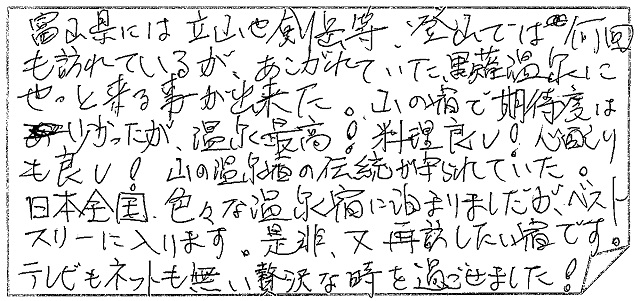 富山県には立山や剣岳等、登山では何回
も訪れているが、あこがれていた黒薙温泉に
やっと来る事が出来た。山の宿で期待度は
かったが、温泉最高!料理良し!心配り
も良し!山の温泉宿の伝統が守られていた。
日本全国、色々な温泉宿に泊まりましたが、ベスト
スリーに入ります。是非、又再訪したい宿です。
テレビもネットも無い贅沢な時を過ごせました!